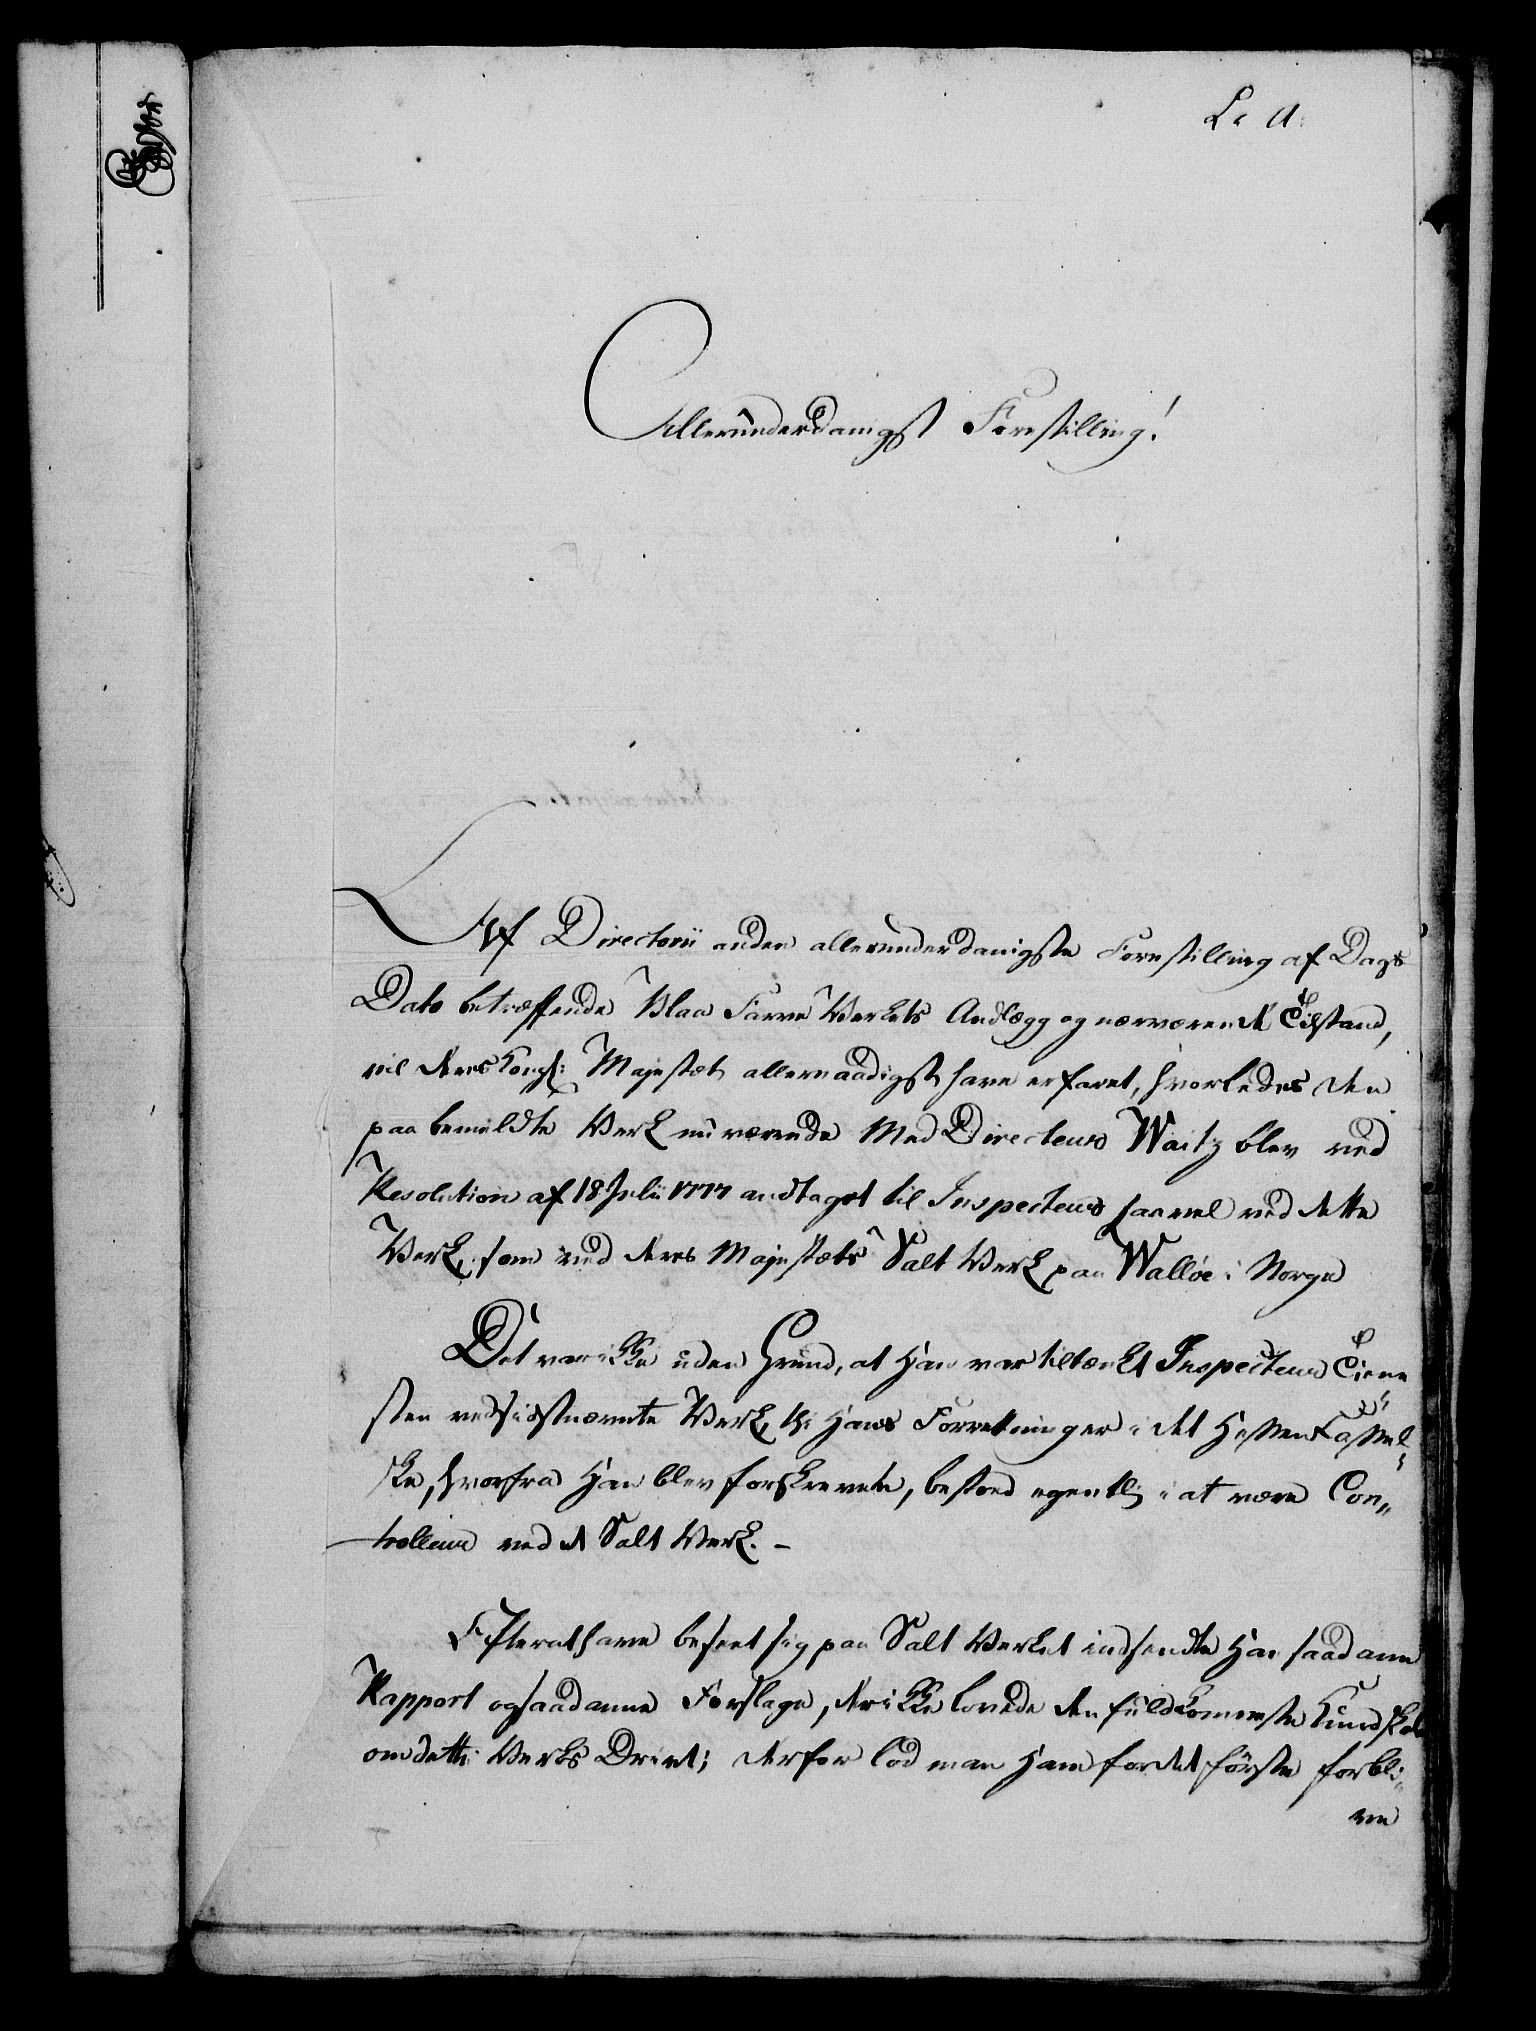 L: A:
Allerunderdanigst Forestilling!
Af Directorii anden allerunderdanigste Forestilling af Dags
Dato betræffende Blaa Farve Verkets Anlægg og nærværende Tilstand,
vil Deres Kongl: Majestæt allernaadigst have erfaret, hvorledes den
paa bemeldte Verk nu værende Med Directeur Waitz blev ved
Resolution af 18 Julii 1777 andtaget til Inspecteur saavel ved dette
Verk, som ved Deres Majestæts Salt Verk paa Walløe i Norge
Det var ikke uden Grund, at Han var tiltænkt Inspecteur Tiene
sten ved sidstnævnte Verk, thi Hans Forretninger i det Hessen Cassel-
ske, hvorfra Han blev forskreven, bestoed egentlig i at være Con„
trolleur ved et Salt Verk. –
Efter at have beseet sig paa Salt Verket indsendte Han saadanne
Rapport og saadanne Forslage, der ikke lovede den fuldkomneste Kundskab
om dette Verks Drivt; derfor lod man Ham for det første forbli-
ve